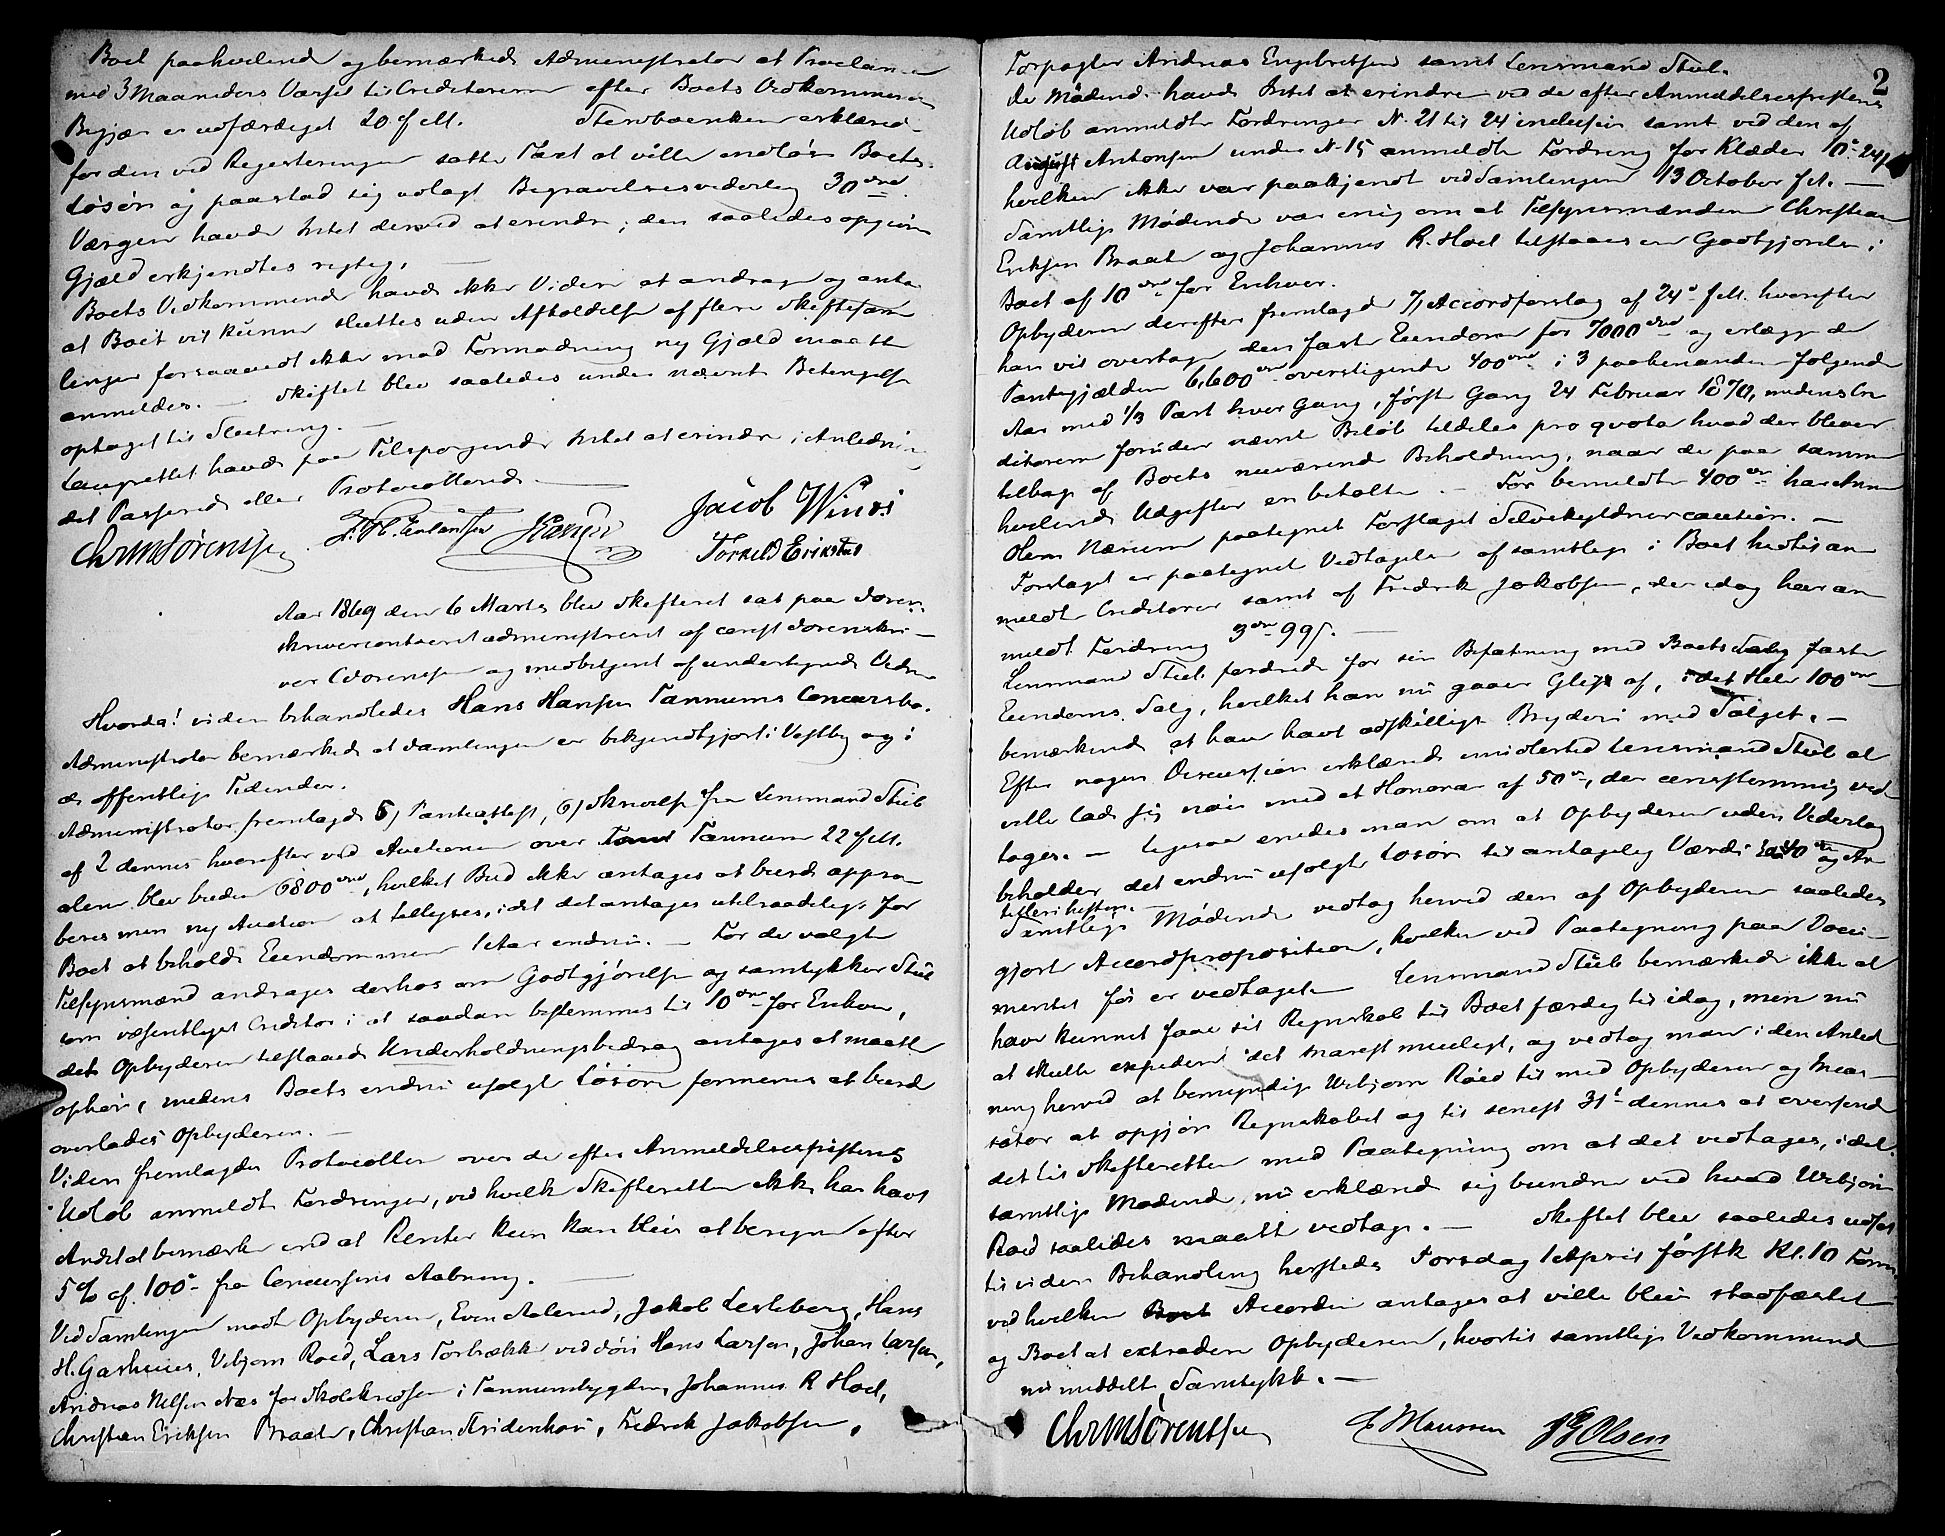 Boet paahvilende og bemærkede Administrator at Proclama
med 3 Maaneders Varsel til Creditorerne efter Boets Vedkommendes
Begjær er udfærdiget 20 f. M. Sterboenken erklærede
for den ved Registreringen satte Taxt at ville indløse Boets
Løsøre og paastod sig udlagt Begravelsesvederlag 30
Værgen havde Intet derved at erindre; den saaledes opgivne
Gjæld erkjendtes rigtig.
Boets Vedkommende havde ikke Videre at andrage og antog
at Boet vil kunne sluttes uden Afholdelse af flere Skiftesam
linger forsaavidt ikke mod Formodning ny Gjæld maatte
anmeldes. — Skiftet blev saaledes under nævnte Betingelse
optaget til Slutning. —
Laugrettet havde paa Tilspørgende Intet at erindre i Anledning
det Passerede eller Protocollerede. —
Chr M Sørenssen Jacob Winds
Torkeld Erikstad
Aar 1869 den 6 Marts blev Skifteret sat paa Soren
skrivercontoiret administreret af const Sorenskri-
ver Sørenssen og medbetjent af undertegnede Vidner
Hvorda! videre behandledes Hans Hansen Tannums Concursbo.
Administrator bemærkede at Samlingen er bekjendtgjort i Vestby og i
de offentlige Tidender.
Administrator fremlagde 5) Panteattest, 6) Skrivelse fra Lensmand Stub
af 2 dennes hvorefter ved Auctionen over Tannum 22 f. M.
alene blev buden 6800, hvilket Bud ikke antages at burde appro-
beres men ny Auction at tillyses, idet det antages utilraadeligt for
Boet at beholde Eiendommen 1 Aar endnu. — For de valgte
Tilsynsmænd andrages derhos om Godtgjørelse og samtykker Stub
som væsentligst Creditor i at saadan bestemmes til 10 for Enhver,
det Opbyderen tilstaaede Underholdningsbidrag antages at maatte
ophøre, medens Boets endnu usolgte Løsøre formenes at burde
overlades Opbyderen. —
Videre fremlagdes Protocollen over de efter Anmeldelsesfristens
Udløb anmeldte Fordringer, ved hvilke Skifteretten ikke har havt
Andet at bemærke end at Renter kun kan blive at beregne efter
5% af 100 fra Concursens Aabning. —
Ved Samlingen mødte Opbyderen, Even Aalerud, Jakob Lesteberg, Hans
H. Garhuus, Vebjørn Roed, Lars Torbæk ved Søn Hans Larsen, Johan Larsen,
Andreas Nilsen Næs for Skolekredsen i Tannumbygden, Johannes R Hoel,
Christian Eriksen Braate, Christian Fredrik Jakobsen,
2
Forpagter Andreas Engebretsen samt Lensmand Stub.
De Mødende havde Intet at erindre ved de efter Anmeldelsesfristens
Udløb anmeldte Fordringer N. 21 til 24 inclusive samt ved den af
August Antonsen under N. 15 anmeldte Fordring for Klæder 10 24
hvilken ikke var paakjendt ved Samlingen 13 October f. A. —
Samtlige Mødende var enig om at Tilsynsmændene Christian
Eriksen Braate og Johannes R. Hoel tilstaaes en Godtgjørelse i
Boet af 10 for Enhver.
Opbyderen derefter fremlagde 7) Accordforslag af 24 f. M. hvorefter
han vil overtage den faste Eiendom for 7000 og erlægge de
Pantegjælden 6,600 overstigende 400 i 3 paahinanden følgende
Aar med 1/3 Part hver Gang, første Gang 24 Februar 1870, medens Cre
ditorerne foruden nævnte Beløb tildeles pro qvota hvad der bliver
tilbage af Boets nuværende Beholdning, naar de paa samme
hvilende Udgifter er betalte. — For bemeldte 400 har Ann
Hem Nærum paategnet Forslaget Selvskyldnercaution. —
Forslaget er paategnet Vedtagelse af samtlige i Boet hidtil an
meldte Creditorer samt af Fredrik Jakobsen, der idag har an
meldt Fordring 3 99. —
Lensmand Stub fordrede for sin Befatning med Boets faste
Eiendoms Salg, hvilket han nu gaaer Glip af, i det Hele 100
bemærkende at han havt adskilligt Bryderi med Salget. —
Efter nogen Discussion erklærede imidlertid Lensmand Stub at
ville lade sig nøie med et Honorar af 50, der eenstemmig ved
toges. — Ligesaa enedes man om at Opbyderen uden Vederlag
beholder det endnu usolgte Løsøre til antagelig Værdi 40 og
Samtlige Mødende vedtog herved den af Opbyderen saaledes
gjorte Accordproposition, hvilken ved Paategning paa Docu-
mentet før er vedtaget. Lensmand Stub bemærkede ikke at
have kunnet faae sit Regnskab til Boet færdig til idag, men nu
at skulle expedere det snarest mueligt, og vedtog man i den Anled
ning herved at bemyndige Vebjørn Roed til med Opbyderen og Incas-
sator at opgjøre Regnskabet og til senest 31 dennes at oversende
det til Skifteretten med Paategning om at det vedtages, idet
samtlige Mødende nu erklærede sig bundne ved hvad Vebjørn
Roed saaledes maatte vedtage. — Skiftet blev saaledes udsat
til videre Behandling hersteds Torsdag 1 April førstk Kl. 10 Form,
ved hvilken Accorden antages at ville blive stadfæstet
og Boet at extradere Opbyderen, hvortil samtlige Vedkommende
nu meddelte Samtykke. —
Chr M Sørenssen Olsen